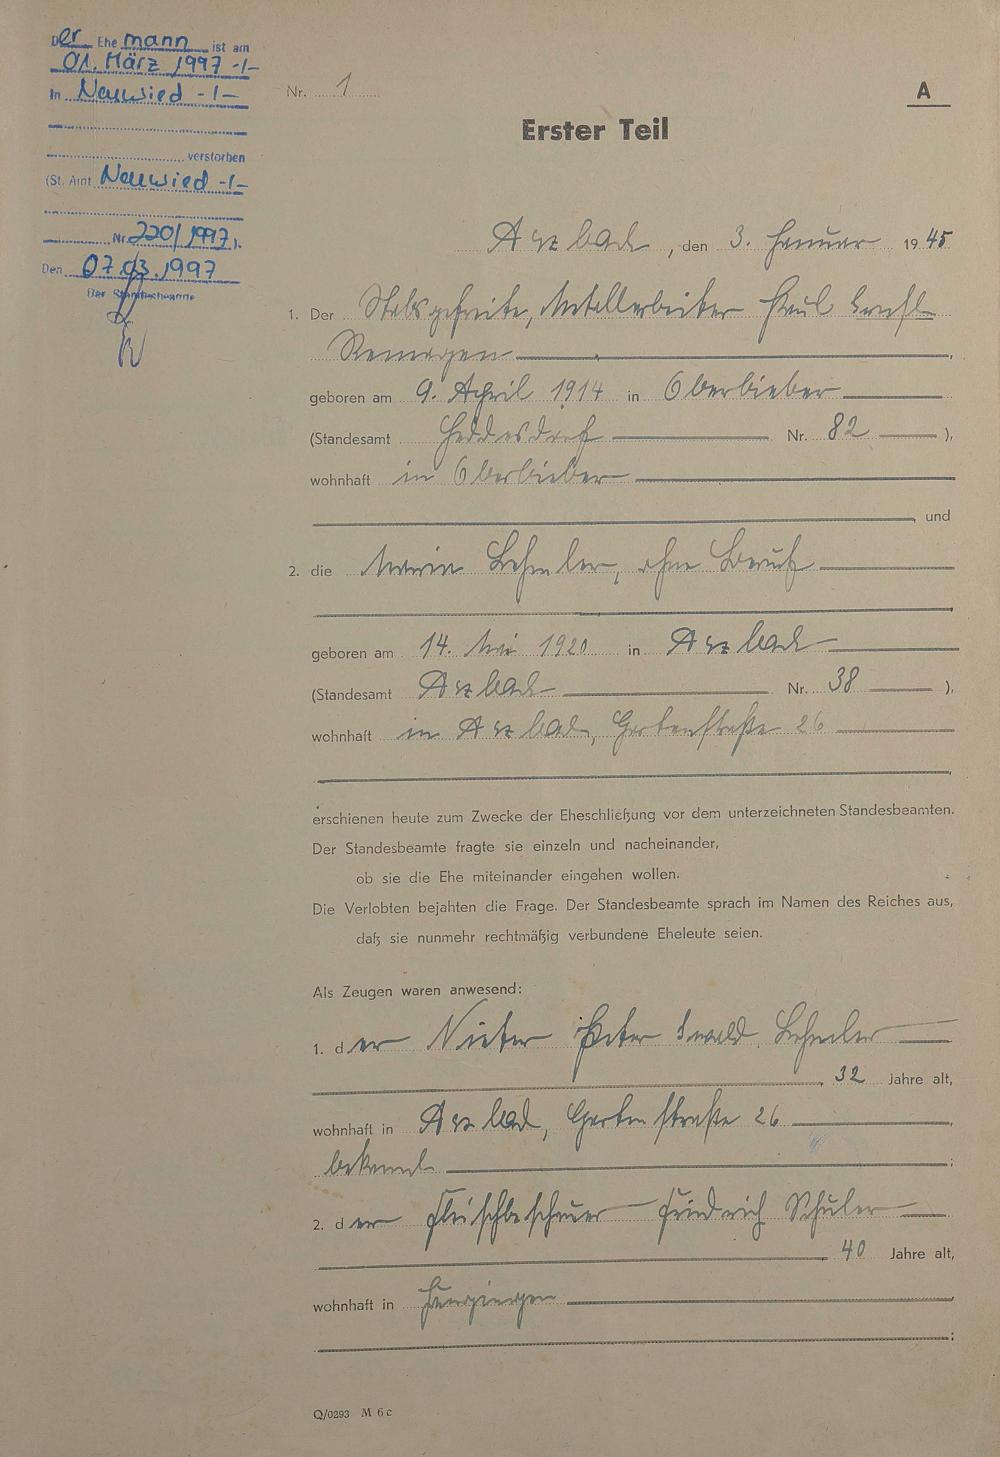 Der Ehe mann ist am
01. März 1997 -/-
in Neuwied -/-
verstorben
(St. Amt Neuwied -/-
Nr. 220/1997).
Den 07.03.1997
Der Standesbeamte
Nr. 1
A
Erster Teil
Arzbach, den 3. Januar 1945
1. Der Stabsgefreite, Metallarbeiter Paul Ernst
Remagen,
geboren am 9. April 1914 in Oberbieber
(Standesamt Heddesdorf Nr. 82 ),
wohnhaft in Oberbieber
, und
2. die Maria Lehmler, ohne Beruf
geboren am 14. Mai 1920 in Arzbach
(Standesamt Arzbach Nr. 38 ),
wohnhaft in Arzbach, Gartenstraße 26
erschienen heute zum Zwecke der Eheschließung vor dem unterzeichneten Standesbeamten.
Der Standesbeamte fragte sie einzeln und nacheinander,
ob sie die Ehe miteinander eingehen wollen.
Die Verlobten bejahten die Frage. Der Standesbeamte sprach im Namen des Reiches aus,
daß sie nunmehr rechtmäßig verbundene Eheleute seien.
Als Zeugen waren anwesend:
1. der Peter Ewald Lehmler
, 32 Jahre alt,
wohnhaft in Arzbach, Gartenstraße 26,
bekannt ;
2. der Fleischbeschauer Friedrich Schuler
40 Jahre alt,
wohnhaft in ,
;
Q/0293 M 6 c